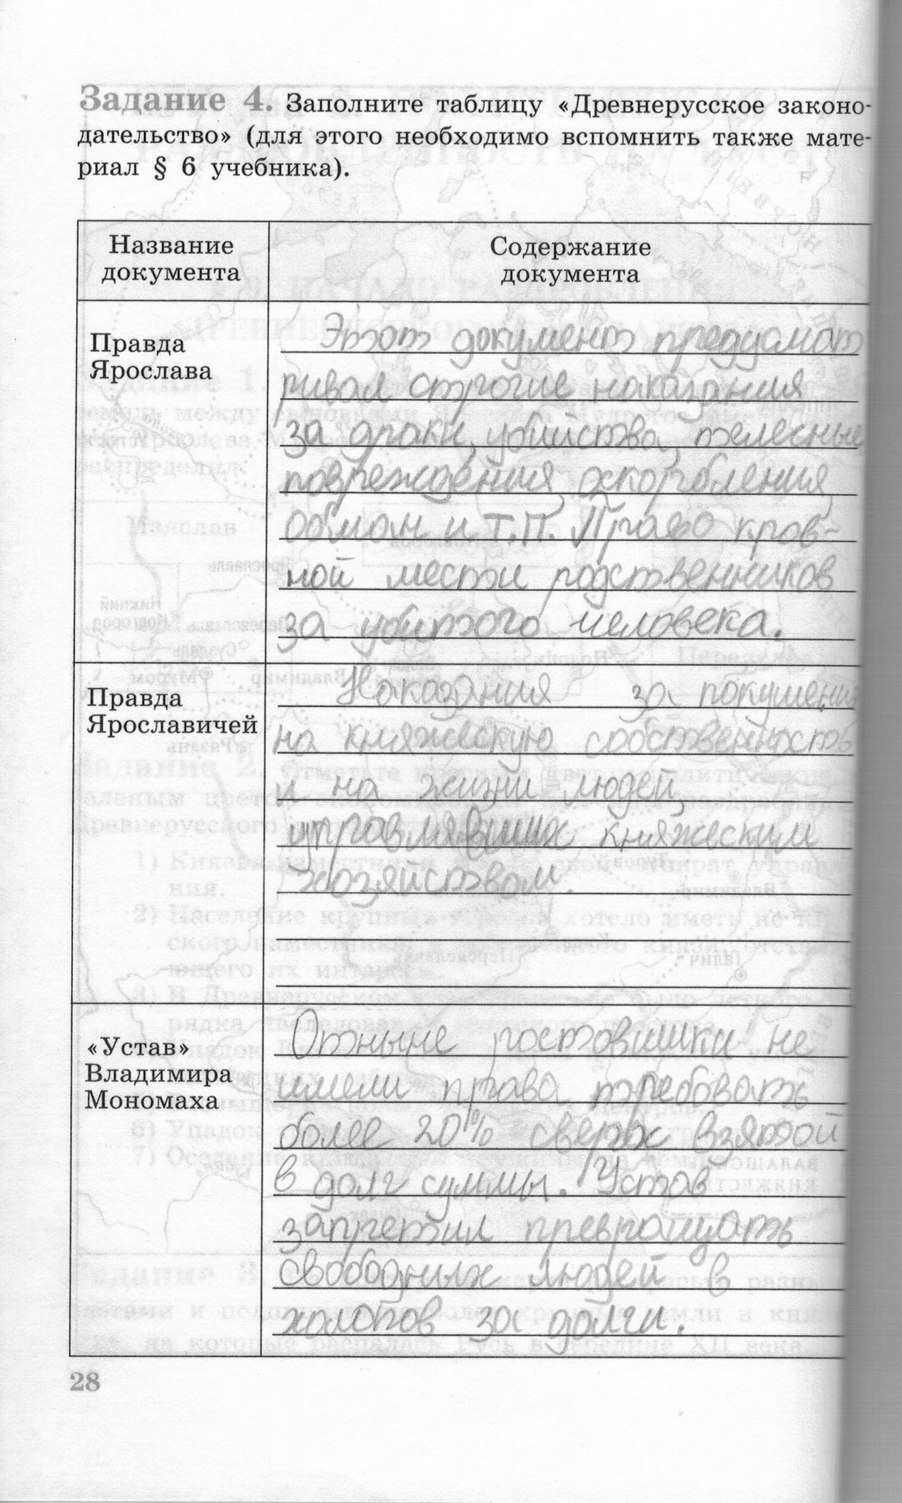 Задание 4. Заполните таблицу «Древнерусское законо-
дательство» (для этого необходимо вспомнить также мате-
риал § 6 учебника).
Название
документа
Содержание
документа
Правда
Ярослава
Этот документ предусмат
ривал строгие наказания
за драки, убийства, телесные
повреждения, оскорбления,
обман и т.п. Право кров-
ной мести родственников
за убитого человека.
Правда
Ярославичей
Наказания за покушения
на княжескую собственность
и на жизни людей,
управлявших княжеским
хозяйством.
«Устав»
Владимира
Мономаха
Отныне ростовщики не
имели права требовать
более 20% сверх взятой
в долг суммы. Устав
запретил превращать
свободных людей в
холопов за долги.
28